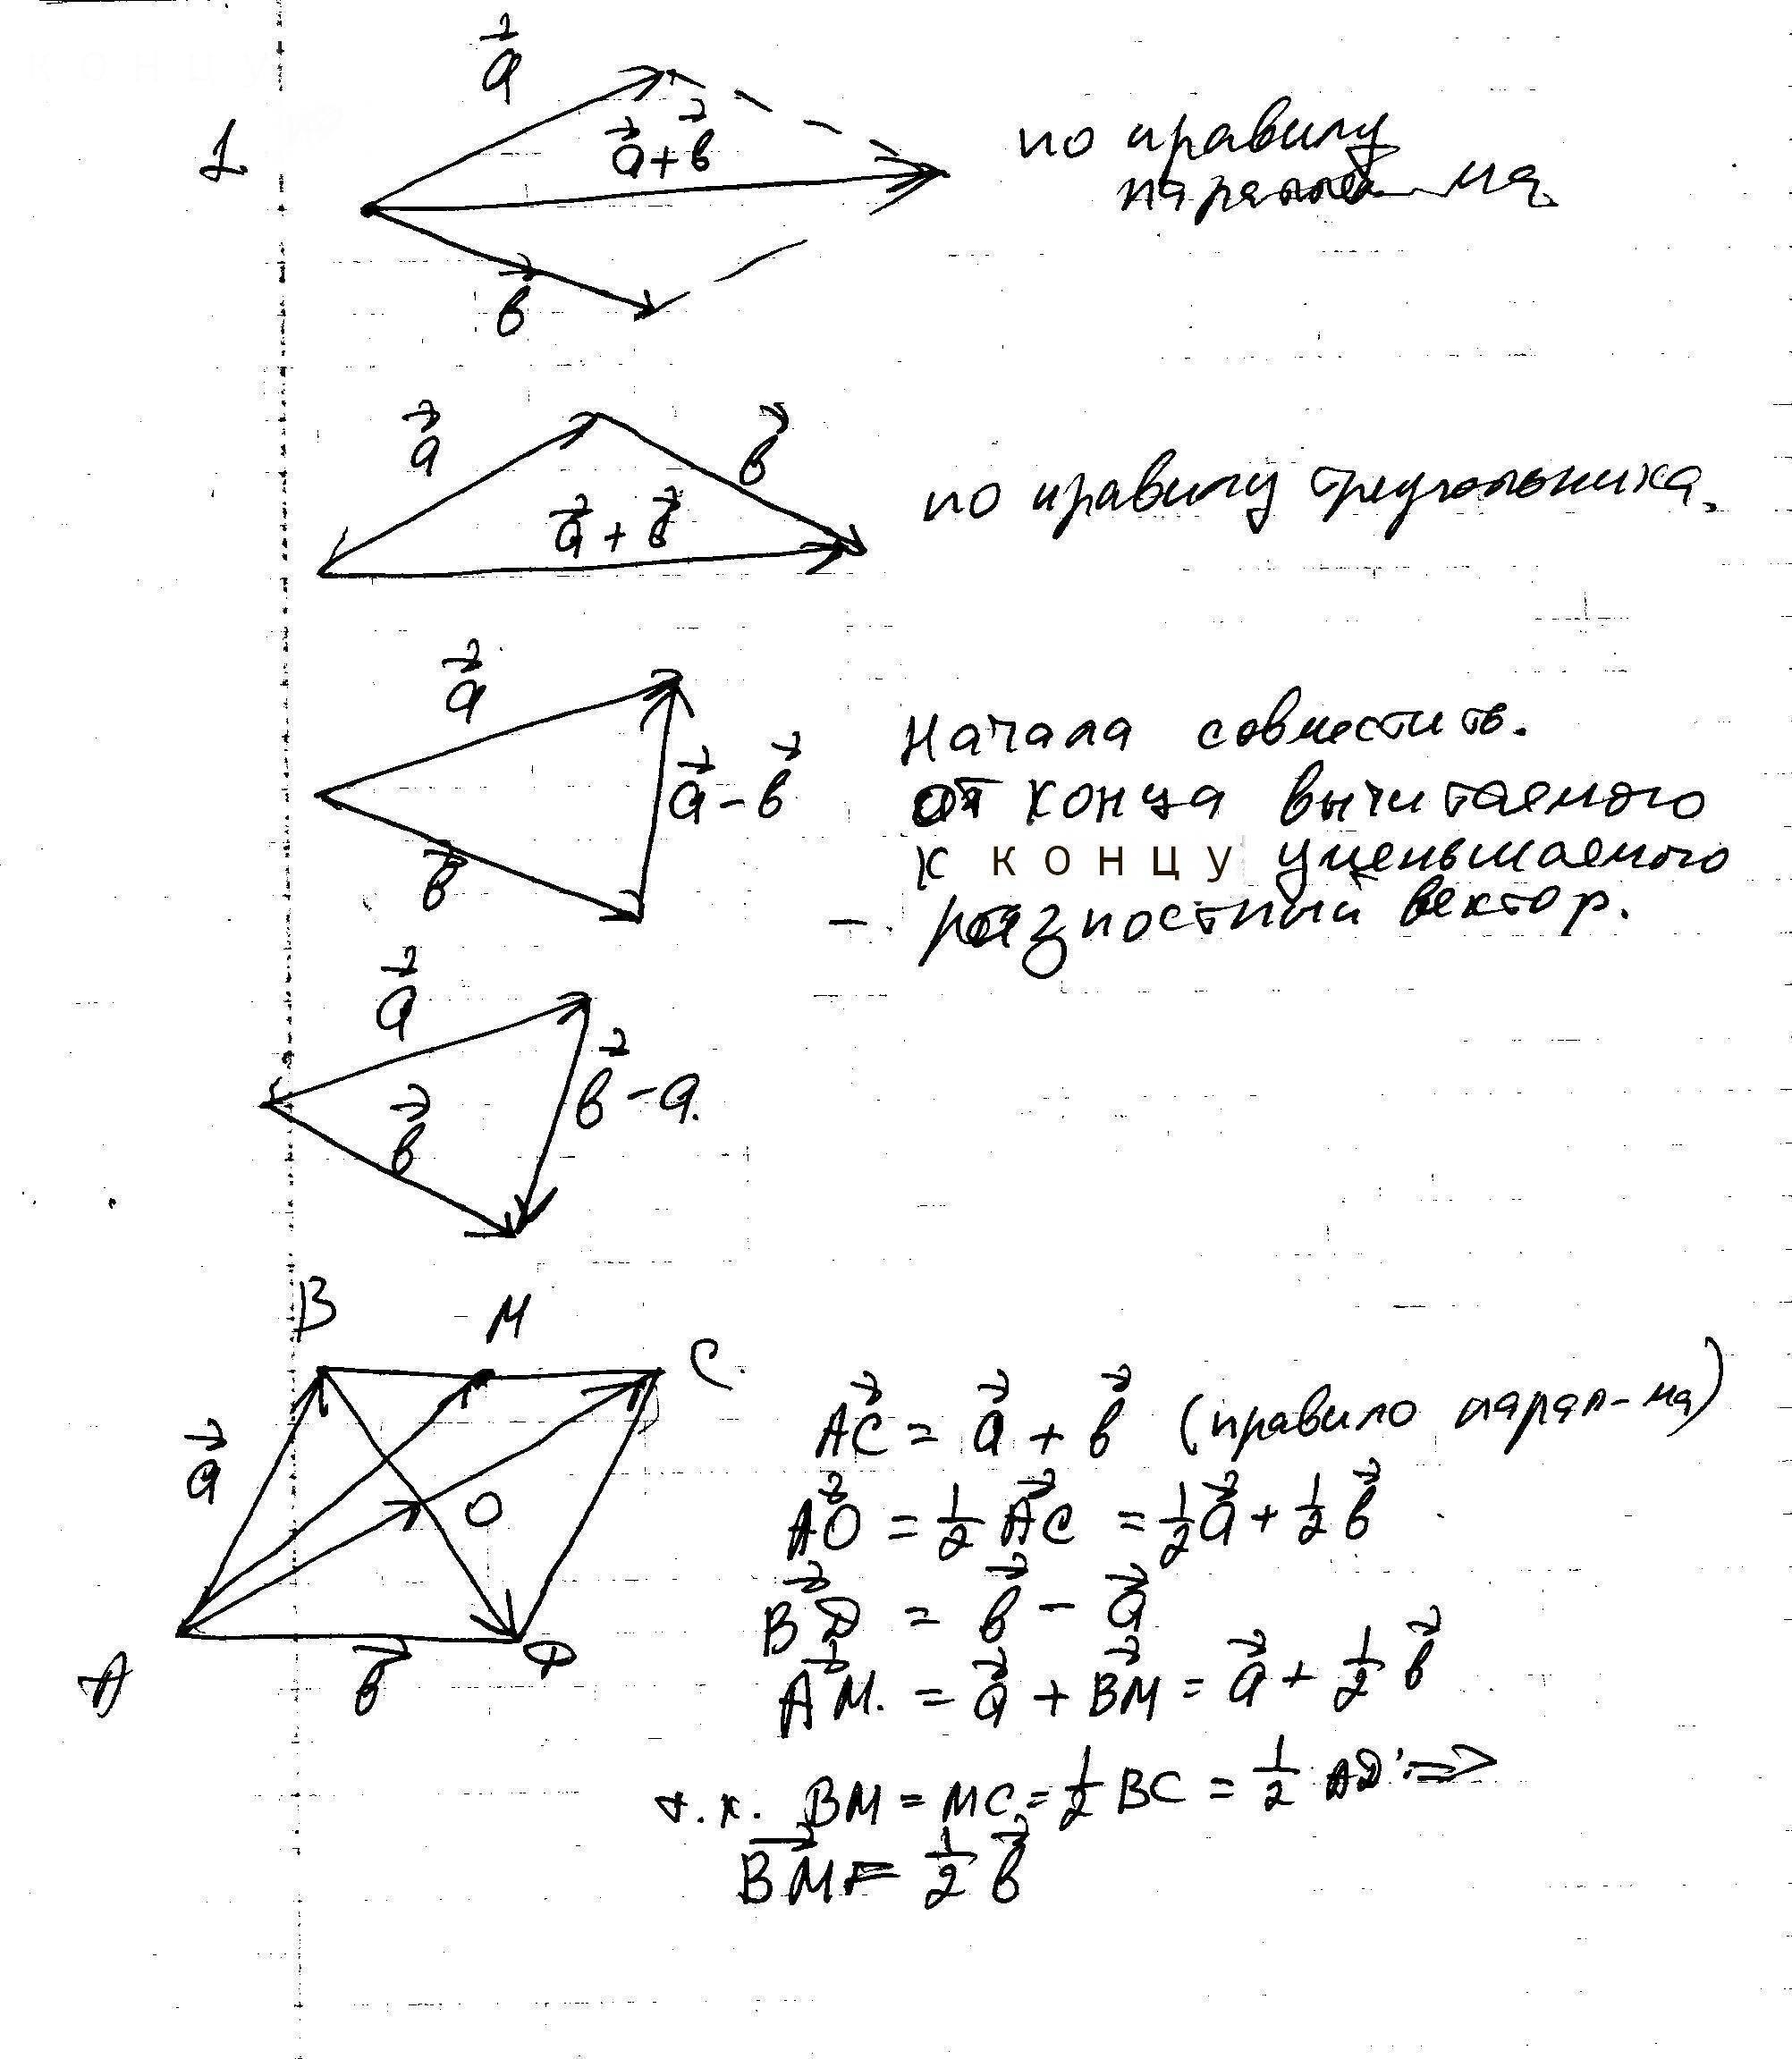 1
a⃗
a⃗+b⃗
b⃗
по правилу
парал-ма
a⃗
b⃗
a⃗ + b⃗
по правилу треугольника.
a⃗
b⃗
a⃗ - b⃗
Начала совместить.
от конца вычитаемого
к концу уменьшаемого
- разностный вектор.
a⃗
b⃗
b⃗ - a.
B M C.
a⃗
O
A b⃗ D
AC⃗ = a⃗ + b⃗ (правило парал-ма)
AO⃗ = 1/2 AC⃗ = 1/2 a⃗ + 1/2 b⃗
BD⃗ = b⃗ - a⃗
AM⃗. = a⃗ + BM⃗ = a⃗ + 1/2 b⃗
т.к. BM = MC = 1/2 BC = 1/2 AD =>
BM⃗ = 1/2 b⃗